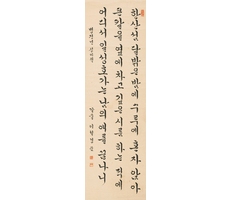 한산섬 달 밝은 밤에 수루에 혼자 앉아
큰 칼을 옆에 차고 깊은 시름 하는 적에
어디서 일성호가는 남의 애를 끊나니